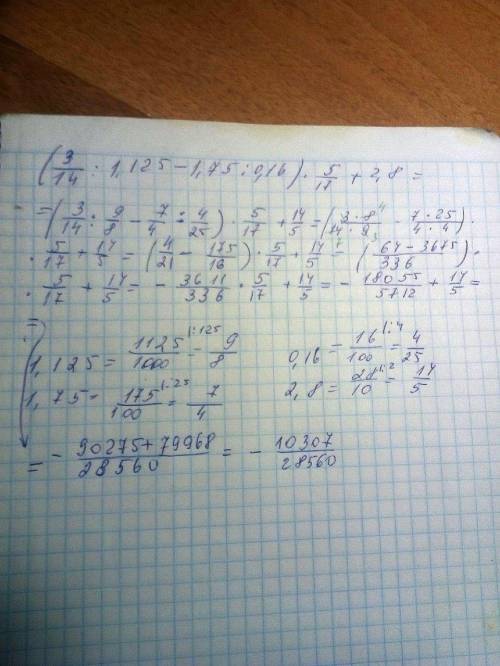 (3/14 : 1,125 − 1,75 : 0,16) · 5/17 + 2,8 =
= (3/14 : 9/8 − 7/4 : 4/25) · 5/17 + 14/5 = (3·8⁴/14·9 − 7·25/4·4) ·
· 5/17 + 14/5 = (4/21 − 175/16) · 5/17 + 14/5 = (64 − 3675/336) ·
· 5/17 + 14/5 = − 3611/336 · 5/17 + 14/5 = − 18055/5712 + 14/5 =
1,125 = 1125/1000 |:125 = 9/8 0,16 = 16/100 |:4 = 4/25
1,75 = 175/100 |:25 = 7/4 2,8 = 28/10 |:2 = 14/5
= − 90275+79968/28560 = − 10307/28560